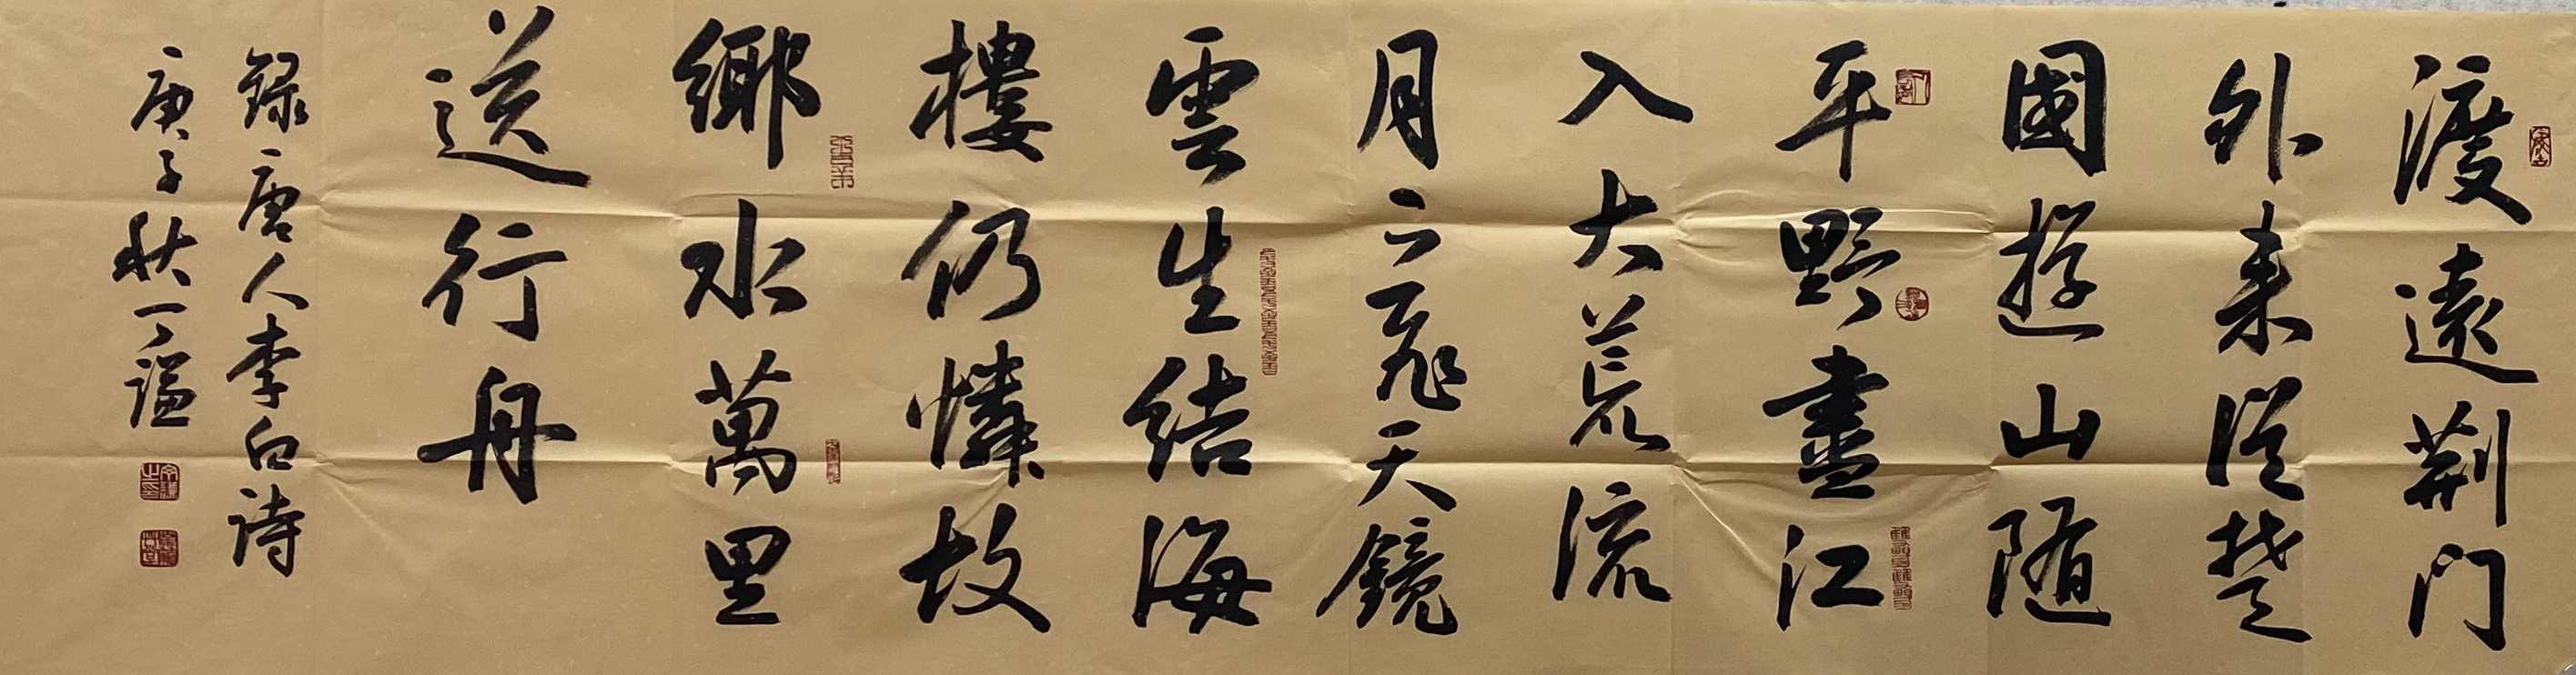 渡遠荆門
外来從楚
國遊山随
平野盡江
入大荒流
月下飛天鏡
雲生結海
樓仍憐故
鄉水萬里
送行舟
録唐人李白詩
庚子秋一謙